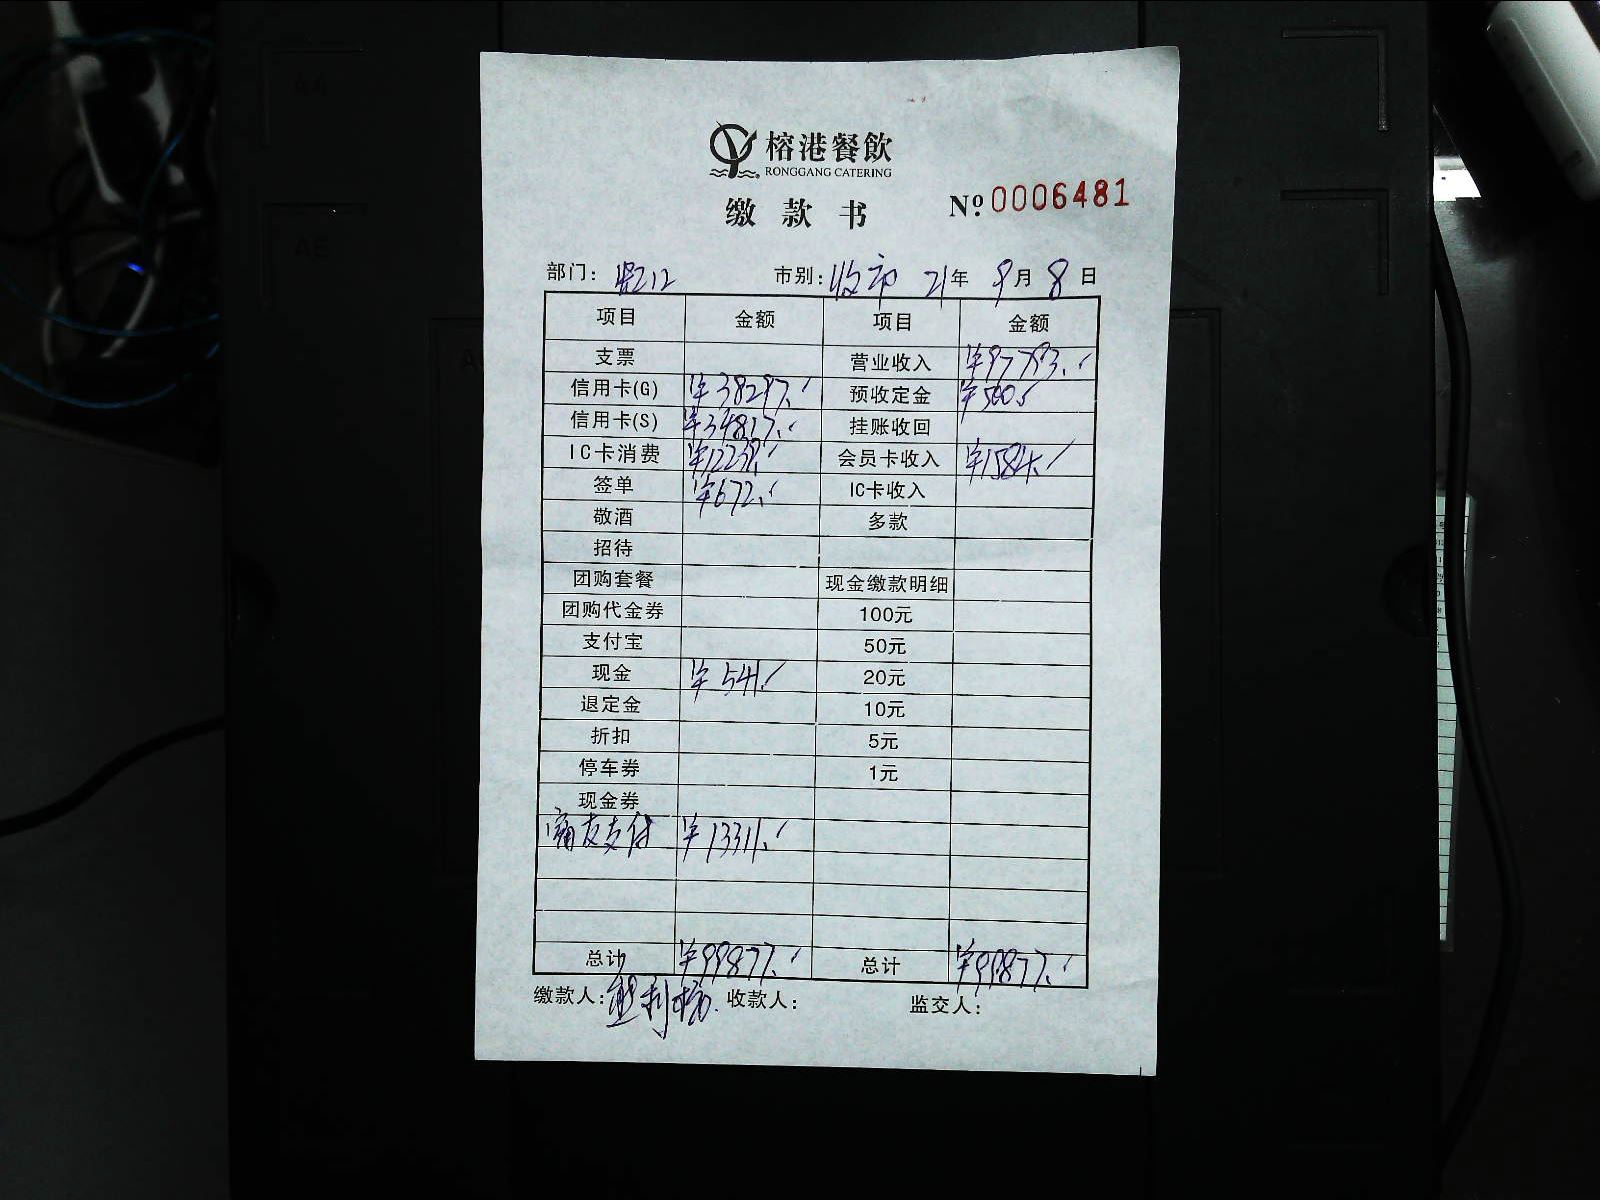 榕港餐飲
RONGGANG CATERING
缴款书
No.0006481
部门: 市别: 收市 21年 9月 8日
项目 金额 项目 金额
支票 营业收入 ¥97793.
信用卡(G) ¥38297. 预收定金 ¥500.
信用卡(S) ¥34817. 挂账收回
IC卡消费 ¥12239. 会员卡收入 ¥1584.
签单 ¥672. IC卡收入
敬酒 多款
招待
团购套餐 现金缴款明细
团购代金券 100元
支付宝 50元
现金 ¥541. 20元
退定金 10元
折扣 5元
停车券 1元
现金券
商友支付 ¥13311.
总计 ¥99877. 总计 ¥99877.
缴款人: 收款人: 监交人: